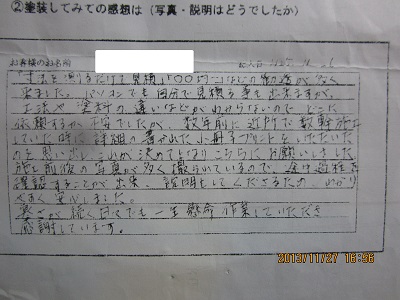 ②塗装してみての感想は(写真・説明はどうでしたか)
お客様のお名前
寸法を測るだけで見積、「〇〇円」
来ました。パソコンでも自分で見積る事も出来ますが、
工法や塗料の違いなどがわからないので、どこに
依頼するか不安でしたが、数年前に近所で数軒施工
していた時に詳細の書かれた小冊子プリントをいただいた
のを思い出し、これが決めてとなりこちらにお願いしました
施工前後の写真が多く撮られているので、塗り過程を
確認することが出来、説明もしてくださるため、わかり
やすく安心しました。
暑さが続く日々でも一生懸命作業していただき
感謝しています。
2013/11/27